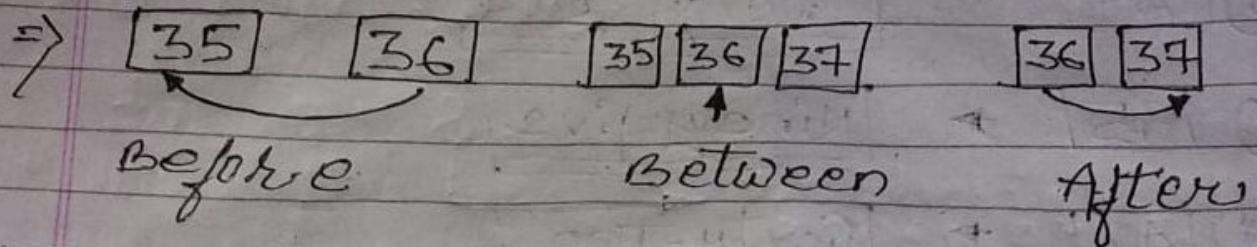 => 35 36 35 36 37 36 37
Before Between After